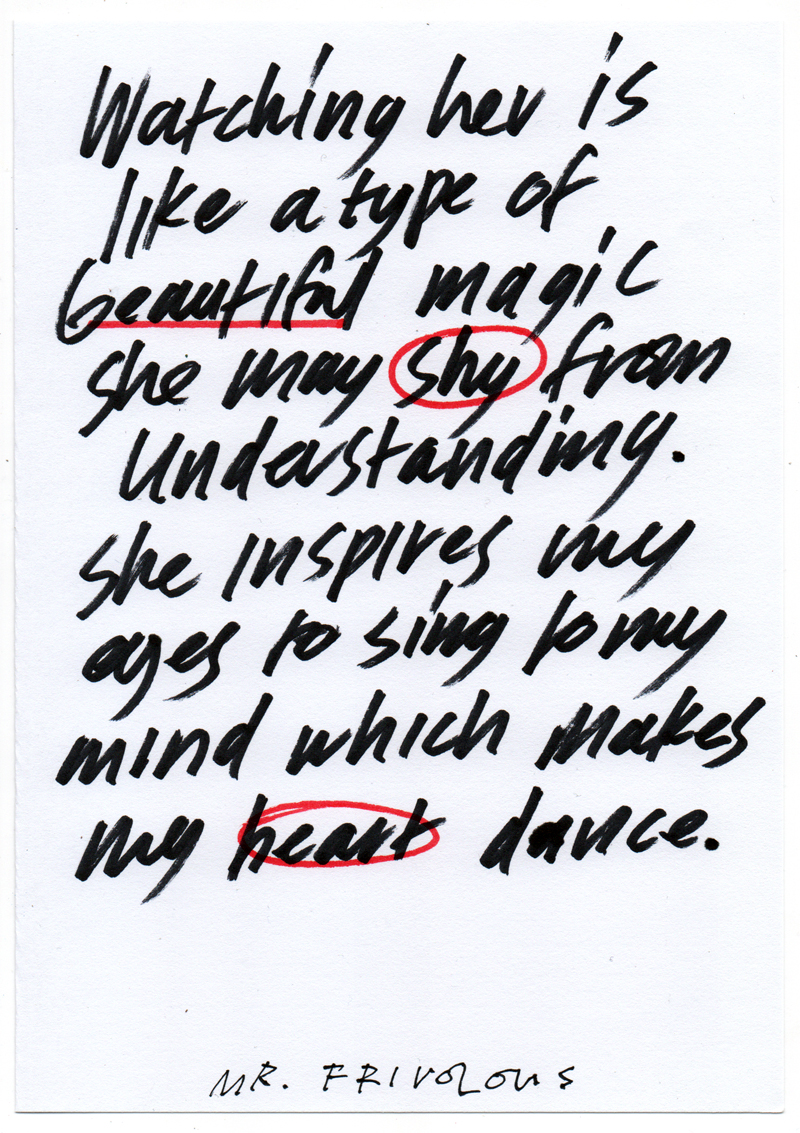 Watching her is
like a type of
beautiful magic
she may shy from
Understanding.
she inspires my
eyes to sing to my
mind which makes
my heart dance.
MR. FRIVOLOUS